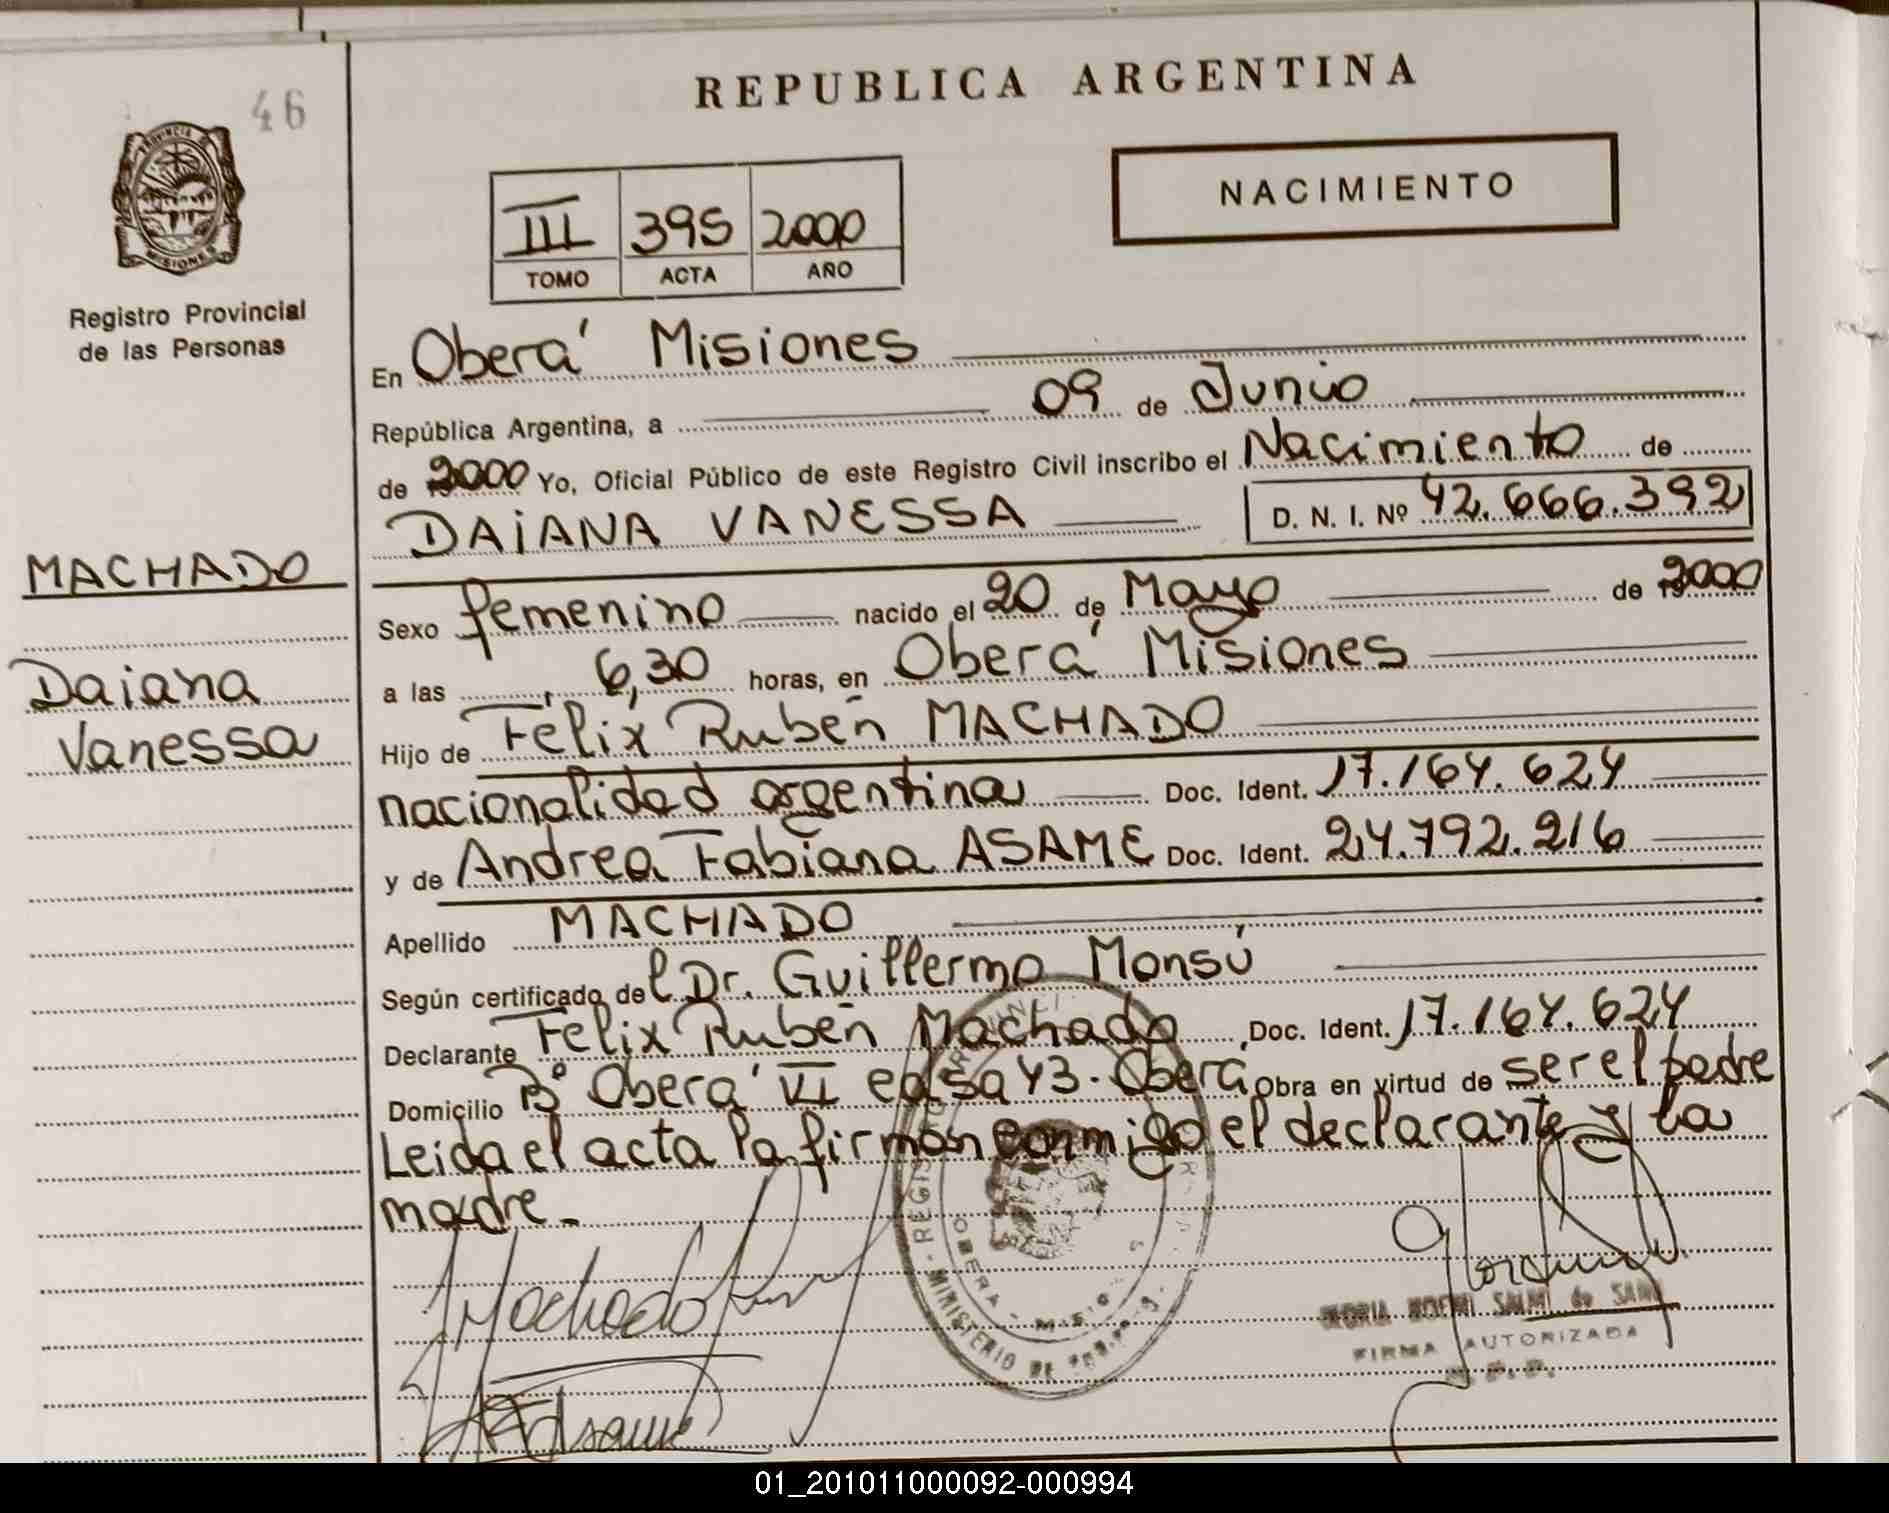 46
PROVINCIA DE
MISIONES
Registro Provincial
de las Personas
MACHADO
Daiana
Vanessa
REPUBLICA ARGENTINA
NACIMIENTO
III 395 2000
TOMO ACTA AÑO
En Oberá Misiones
República Argentina, a 09 de Junio
de 2000 Yo, Oficial Público de este Registro Civil inscribo el Nacimiento de
DAIANA VANESSA D. N. I. Nº 42.666.392
Sexo femenino nacido el 20 de Mayo de 2000
a las 6,30 horas, en Oberá Misiones
Hijo de Félix Rubén MACHADO
nacionalidad argentina Doc. Ident. 17.164.624
y de Andrea Fabiana ASAME Doc. Ident. 24.792.216
Apellido MACHADO
Según certificado del Dr. Guillermo Monsú
Declarante Félix Rubén Machado Doc. Ident. 17.164.624
Domicilio Bº Oberá VI casa 43. Oberá Obra en virtud de ser el padre
Leida el acta la firman conmigo el declarante y la
madre.
Machado
FIRMA AUTORIZADA
OBERA
MINISTERIO DE
01_201011000092-000994